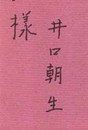 井口朝生
様